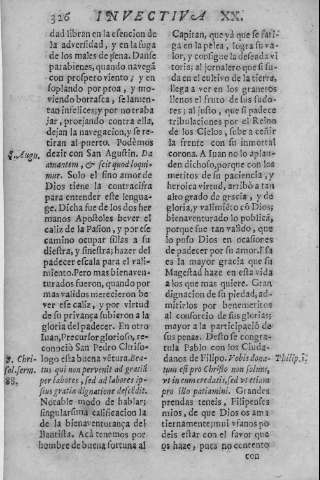 326 INVECTIVA XX.
dad libran en la esencion de
la adversidad, y en la fuga
de los males de pena. Danse
parabienes, quando navegã
con prospero viento, y en
soplando por proa, y mo-
viendo borrasca, se lamen-
tan infelices; y por no traba
jar, proejando contra ella,
dejan la navegacion, y se re-
tiran al puerto. Podèmos
dezir con San Agustin. Da
amantem, & scit quod loqui-
mur. Solo el fino amor de
Dios tiene la contracifra
para entender este lengua-
ge. Dicha fue de los dos her
manos Apostoles bever el
caliz de la Pasion, y por ese
camino ocupar sillas a su
diestra, y siniestra; hazer del
padecer escala para el vali-
miento. Pero mas bienaven-
turados fueron, quando por
mas validos merecieron be
ver ese caliz, y por virtud
de su privança subieron a la
gloria del padecer. En otro
Iuan, Precursor glorioso, re-
conociò San Pedro Chriso-
logo esta buena vētura. Bea-
tus qui non pervenit ad gratiã
per labores, sed ad labores ip-
sius gratia dignatione descẽdit.
Notable modo de hablar;
singularissima calificacion la
de la bienaventurança del
Bautista. Acà tenemos por
hombre de buena fortuna al
S. Augu.
S. Chri-
sol. serm.
88.
Capitan, que yà que se fati-
ga en la pelea, logra su va-
lor, y consigue la deseada vi
toria: al jornalero que si su-
da en el cultivo de la tierra,
llega a ver en los graneros
llenos el fruto de sus sudo-
res; al justo, que si padece
tribulaciones por el Reino
de los Cielos, sube a ceñir
la frente con su inmortal
corona. A Iuan no lo aplau-
den dichoso, porque con los
meritos de su paciencia, y
heroica virtud, arribò a tan
alto grado de gracia, y de
gloria, y valimiẽto cõ Dios;
bienaventurado lo publicã,
porque fue tan valido, que
lo puso Dios en ocasiones
de padecer por su amor. Esa
es la mayor gracia que su
Magestad haze en esta vida
a los que mas quiere. Gran
dignacion de su piedad, ad-
mitirlos por benemeritos
al consorcio de sus glorias;
mayor a la participaciõ de
sus penas. Desto se congra-
tula Pablo con los Ciuda-
danos de Filipo. Vobis dona-
tum est pro Christo non solum,
vt in eum credatis, sed vt etiam
pro illo patiamini. Grandes
prendas teneis, Filipenses
mios, de que Dios os ama
tiernamente; mui vfanos po
deis estar con el favor que
os haze, pues no contento
con
Philip. 1.